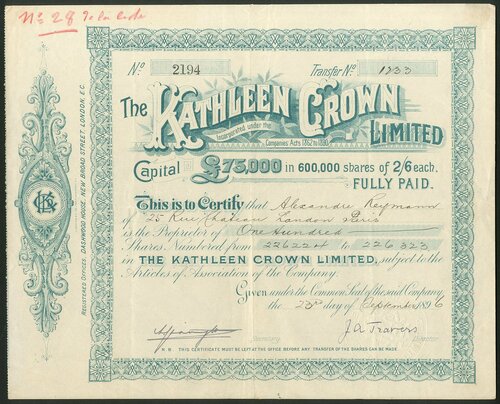 No 28
No 2194 Transfer No 1233
The KATHLEEN CROWN
Incorporated under the
Companies Acts 1862 to 1890
LIMITED
Capital £75,000 in 600,000 shares of 2/6 each.
FULLY PAID.
This is to Certify that Alexandre Reymann
of 25 Rue Chateau Landon Paris
is the Proprietor of One Hundred
Shares Numbered from 226224 to 226323
in THE KATHLEEN CROWN LIMITED, subject to the
Articles of Association of the Company.
Given under the Common Seal of the said Company
the 23rd day of September 1896
J. A. Travers
Secretary Director
N.B. THIS CERTIFICATE MUST BE LEFT AT THE OFFICE BEFORE ANY TRANSFER OF THE SHARES CAN BE MADE
REGISTERED OFFICES, DASHWOOD HOUSE, NEW BROAD STREET, LONDON, E.C.